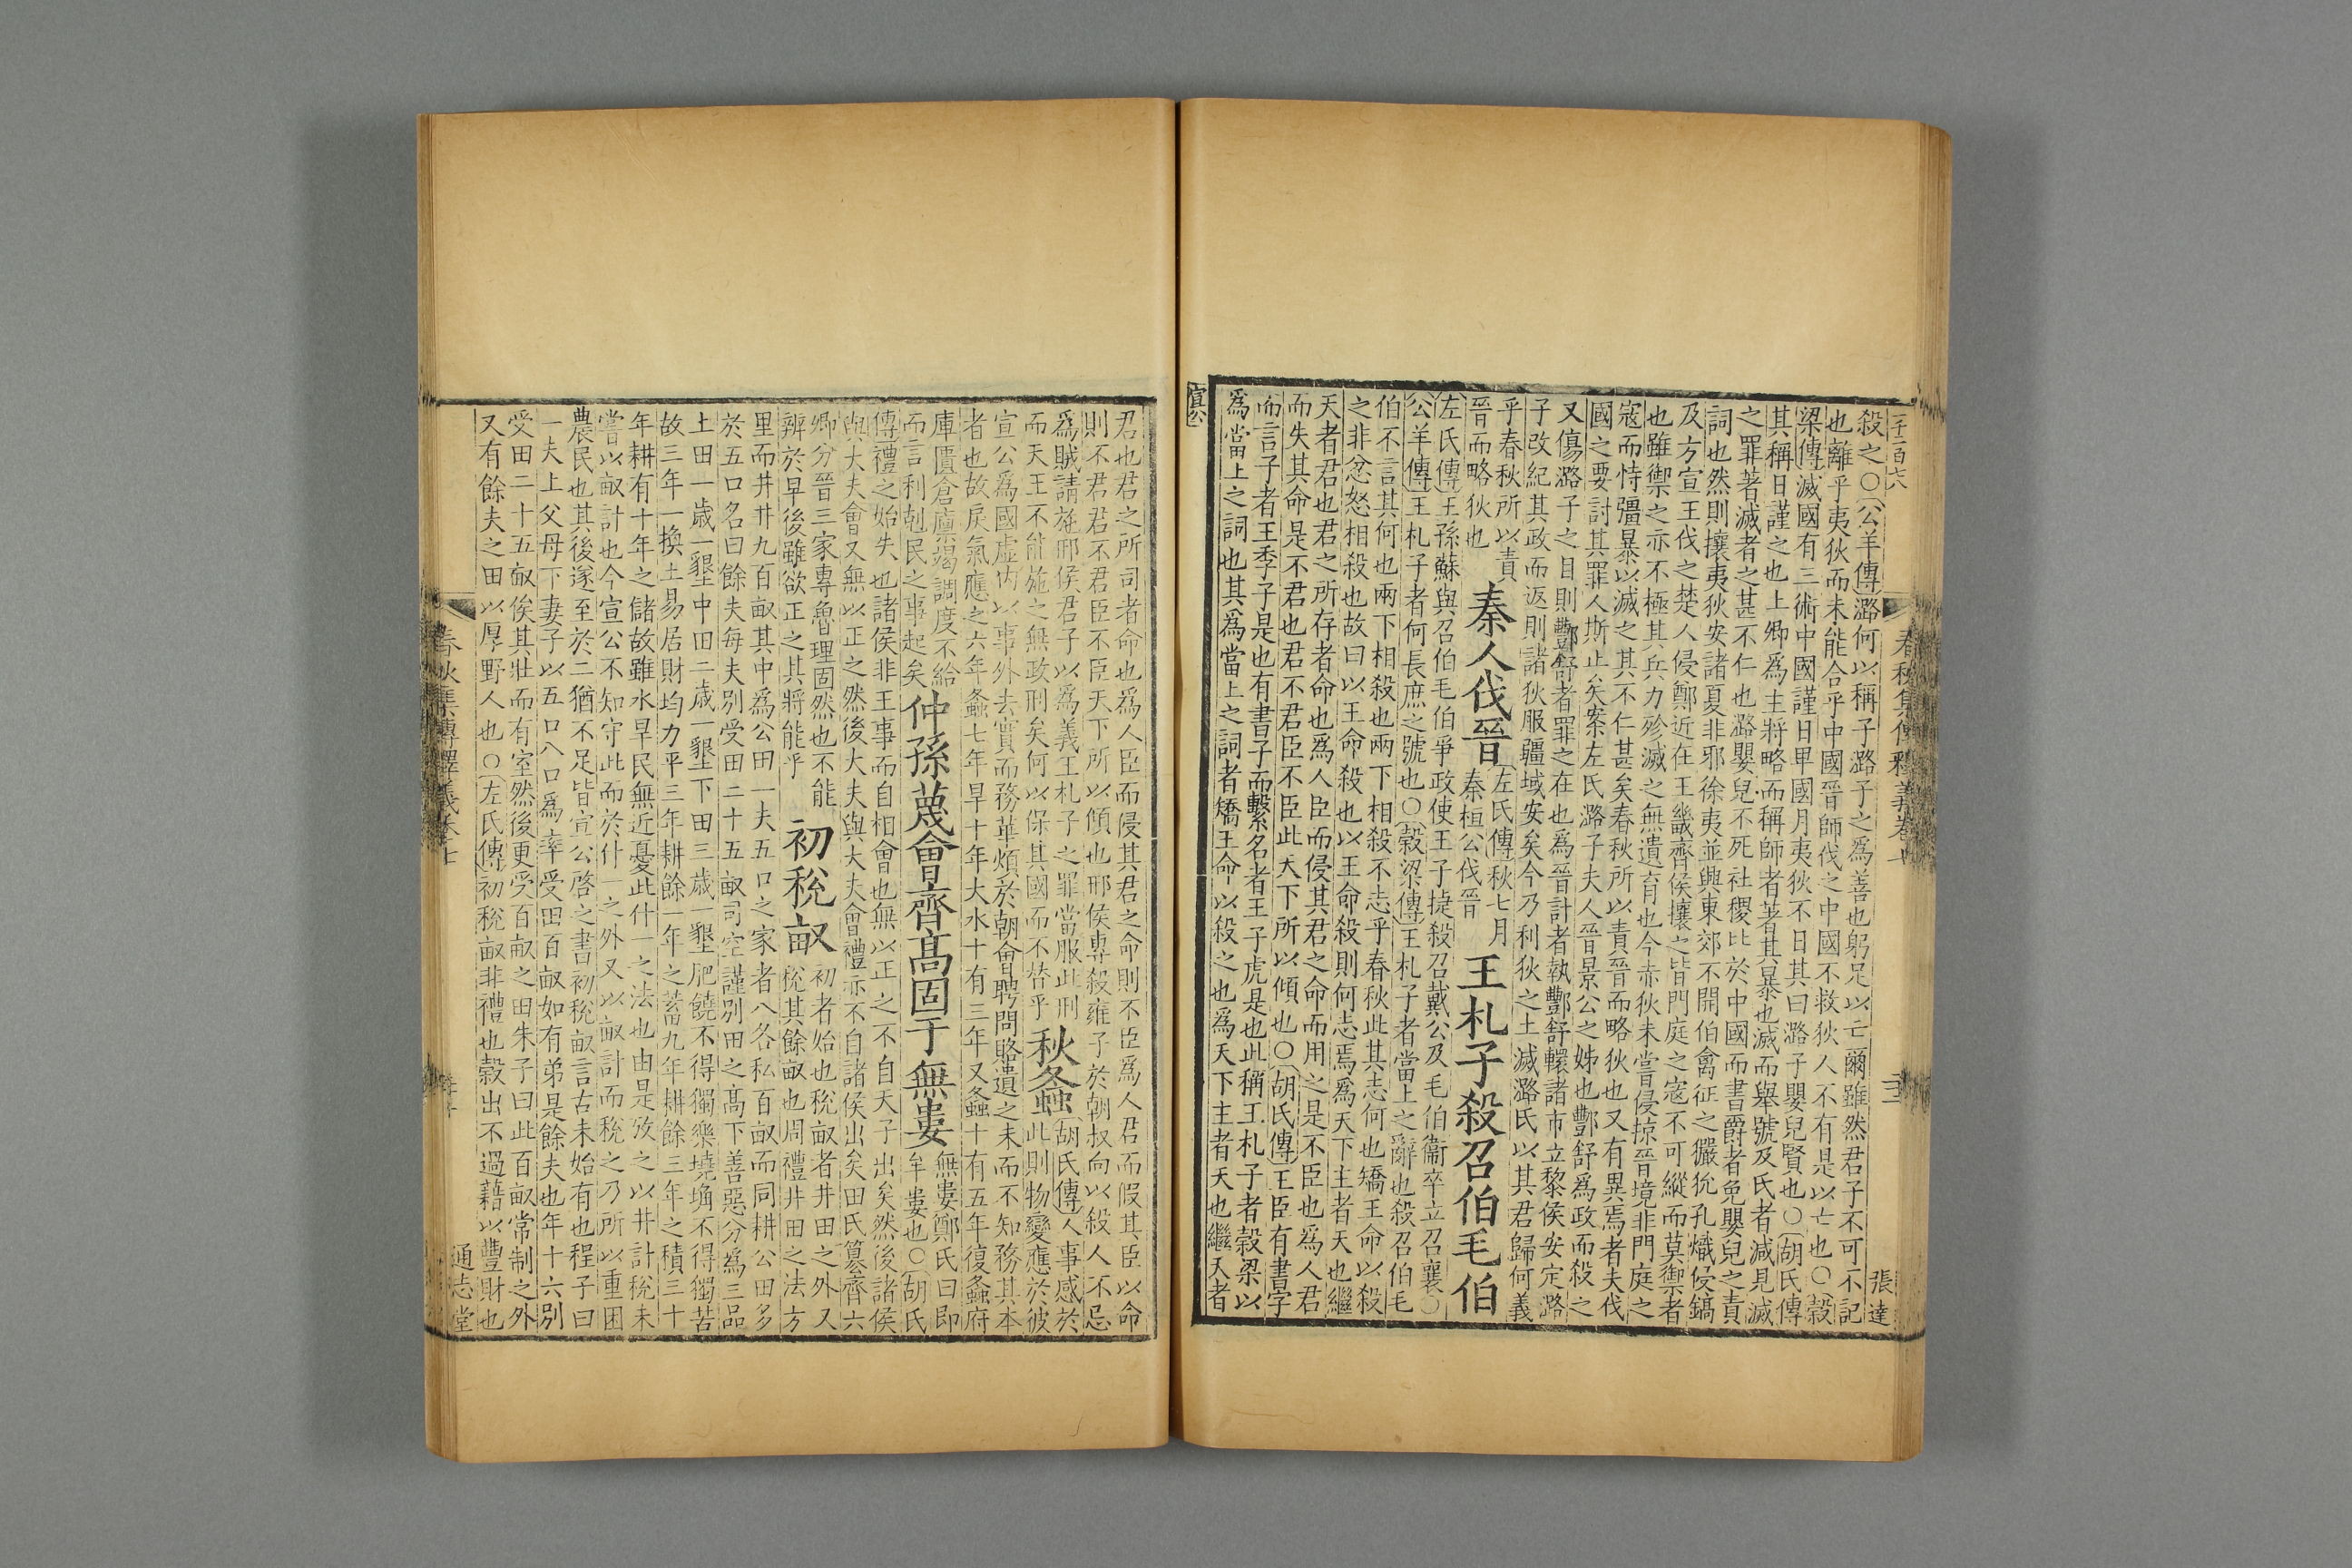 二千二百六
春秋集傳釋義卷七
十三
張達
殺之○公羊傳潞何以稱子潞子之為善也躬足以亡爾雖然君子不可不記
也離乎夷狄而未能合乎中國晉師伐之中國不救狄人不有是以亡也○榖
梁傳滅國有三術中國謹日卑國月夷狄不日其曰潞子嬰兒賢也○胡氏傳
其稱日謹之也上卿為主將略而稱師者著其暴也滅而舉號及氏者減見滅
之罪著滅者之甚不仁也潞嬰兒不死社稷比於中國而書爵者免嬰兒之責
詞也然則攘夷狄安諸夏非邪徐夷並興東郊不開伯禽征之玁狁孔熾侵鎬
及方宣王伐之楚人侵鄭近在王畿齊侯攘之皆門庭之寇不可縱而莫禦者
也雖禦之亦不極其兵力殄滅之無遺育也今赤狄未嘗侵掠晉境非門庭之
寇而恃彊暴以滅之其不仁甚矣春秋所以責晉而略狄也又有異焉者夫伐
國之要討其罪人斯止矣案左氏潞子夫人晉景公之姊也酆舒為政而殺之
又傷潞子之目則酆舒者罪之在也為晉計者執酆舒轘諸市立黎侯安定潞
子改紀其政而返則諸狄服疆域安矣今乃利狄之土滅潞氏以其君歸何義
乎春秋所以責
晉而略狄也
秦人伐晉
左氏傳秋七月
秦桓公伐晉
王札子殺召伯毛伯
左氏傳王孫蘇與召伯毛伯爭政使王子捷殺召戴公及毛伯衞卒立召襄○
公羊傳王札子者何長庶之號也○榖梁傳王札子者當上之辭也殺召伯毛
伯不言其何也兩下相殺也兩下相殺不志乎春秋此其志何也矯王命以殺
之非忿怒相殺也故曰以王命殺也以王命殺則何志焉為天下主者天也繼
天者君也君之所存者命也為人臣而侵其君之命而用之是不臣也為人君
而失其命是不君也君不君臣不臣此天下所以傾也○胡氏傳王臣有書字
而言子者王季子是也有書子而繫名者王子虎是也此稱王札子者榖梁以
為當上之詞也其為當上之詞者矯王命以殺之也為天下主者天也繼天者
宣公
君也君之所司者命也為人臣而侵其君之命則不臣為人君而假其臣以命
則不君君不君臣不臣天下所以傾也邢侯專殺雍子於朝叔向以殺人不忌
為賊請施邢侯君子以為義王札子之罪當服此刑
而天王不能施之無政刑矣何以保其國而不咎乎
秋螽
胡氏傳人事感於
此則物變應於彼
宣公為國虛內以事外去實而務華煩於朝會聘問賂遺之末而不知務其本
者也故戾氣應之六年螽七年旱十年大水十有三年又螽十有五年復螽府
庫匱倉廩竭調度不給
而言利剋民之事起矣
仲孫蔑會齊髙固于無婁
無婁鄭氏曰即
牟婁也○胡氏
傳禮之始失也諸侯非王事而自相會也無以正之不自天子出矣然後諸侯
與大夫會又無以正之然後大夫與大夫會禮亦不自諸侯出矣田氏簒齊六
卿分晉三家專魯理固然也不能
辨於早後雖欲正之其將能乎
初稅畝
初者始也稅畝者井田之外又
稅其餘畝也周禮井田之法方
里而井井九百畝其中為公田一夫五口之家者八各私百畝而同耕公田多
於五口名曰餘夫每夫別受田二十五畝司空謹別田之髙下善惡分為三品
上田一歲一墾中田二歲一墾下田三歲一墾肥饒不得獨樂墝埆不得獨苦
故三年一換土易居財均力平三年耕餘一年之蓄九年耕餘三年之積三十
年耕有十年之儲故雖水旱民無近憂此什一之法也由是攷之以井計稅未
嘗以畝計也今宣公不知守此而於什一之外又以畝計而稅之乃所以重困
農民也其後遂至於二猶不足皆宣公啓之書初稅畝言古未始有也程子曰
一夫上父母下妻子以五口八口為率受田百畝如有弟是餘夫也年十六別
受田二十五畝俟其壯而有室然後更受百畝之田朱子曰此百畝常制之外
又有餘夫之田以厚野人也○左氏傳初稅畝非禮也榖出不過藉以豐財也
春秋集傳釋義卷七
通志堂